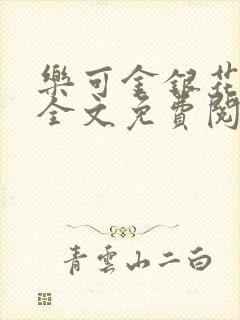 樂可金銀花
全文免費閱
青雲山二白